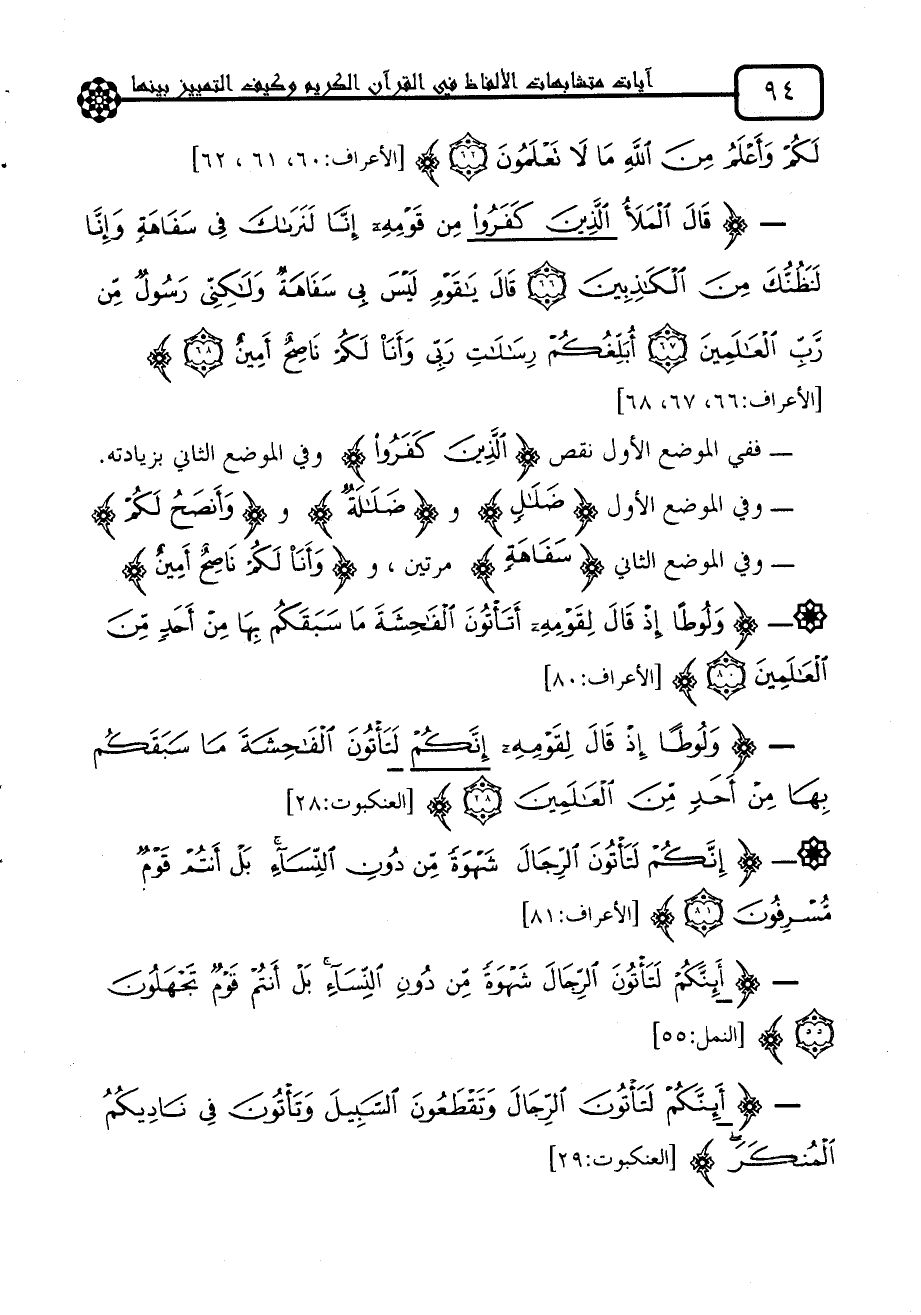 ٩٤
آيات متشابهات الألفاظ في القرآن الكريم وكيف التمييز بينها
لَكُمْ وَأَعْلَمُ مِنَ ٱللَّهِ مَا لَا تَعْلَمُونَ ٦٢ ﴾ [الأعراف:٦٠، ٦١ ، ٦٢]
— ﴿ قَالَ ٱلْمَلَأُ ٱلَّذِينَ كَفَرُوا۟ مِن قَوْمِهِۦٓ إِنَّا لَنَرَىٰكَ فِى سَفَاهَةٍ وَإِنَّا
لَنَظُنُّكَ مِنَ ٱلْكَٰذِبِينَ ٦٦ قَالَ يَٰقَوْمِ لَيْسَ بِى سَفَاهَةٌ وَلَٰكِنِّى رَسُولٌ مِّن
رَّبِّ ٱلْعَٰلَمِينَ ٦٧ أُبَلِّغُكُمْ رِسَٰلَٰتِ رَبِّى وَأَنَا۠ لَكُمْ نَاصِحٌ أَمِينٌ ٦٨ ﴾
[الأعراف:٦٦، ٦٧، ٦٨]
— ففي الموضع الأول نقص ﴿ ٱلَّذِينَ كَفَرُوا۟ ﴾ وفي الموضع الثاني بزيادته.
— وفي الموضع الأول ﴿ ضَلَٰلٍ ﴾ و ﴿ ضَلَٰلَةٌ ﴾ و ﴿ وَأَنصَحُ لَكُمْ ﴾
— وفي الموضع الثاني ﴿ سَفَاهَةٍ ﴾ مرتين ، و ﴿ وَأَنَا۠ لَكُمْ نَاصِحٌ أَمِينٌ ﴾
— ﴿ وَلُوطًا إِذْ قَالَ لِقَوْمِهِۦٓ أَتَأْتُونَ ٱلْفَٰحِشَةَ مَا سَبَقَكُم بِهَا مِنْ أَحَدٍ مِّنَ
ٱلْعَٰلَمِينَ ٨٠ ﴾ [الأعراف:٨٠]
— ﴿ وَلُوطًا إِذْ قَالَ لِقَوْمِهِۦٓ إِنَّكُمْ لَتَأْتُونَ ٱلْفَٰحِشَةَ مَا سَبَقَكُم
بِهَا مِنْ أَحَدٍ مِّنَ ٱلْعَٰلَمِينَ ٢٨ ﴾ [العنكبوت:٢٨]
— ﴿ إِنَّكُمْ لَتَأْتُونَ ٱلرِّجَالَ شَهْوَةً مِّن دُونِ ٱلنِّسَآءِ ۚ بَلْ أَنتُمْ قَوْمٌ
مُّسْرِفُونَ ٨١ ﴾ [الأعراف:٨١]
— ﴿ أَئِنَّكُمْ لَتَأْتُونَ ٱلرِّجَالَ شَهْوَةً مِّن دُونِ ٱلنِّسَآءِ ۚ بَلْ أَنتُمْ قَوْمٌ تَجْهَلُونَ
٥٥ ﴾ [النمل:٥٥]
— ﴿ أَئِنَّكُمْ لَتَأْتُونَ ٱلرِّجَالَ وَتَقْطَعُونَ ٱلسَّبِيلَ وَتَأْتُونَ فِى نَادِيكُمُ
ٱلْمُنكَرَ ۖ ﴾ [العنكبوت:٢٩]